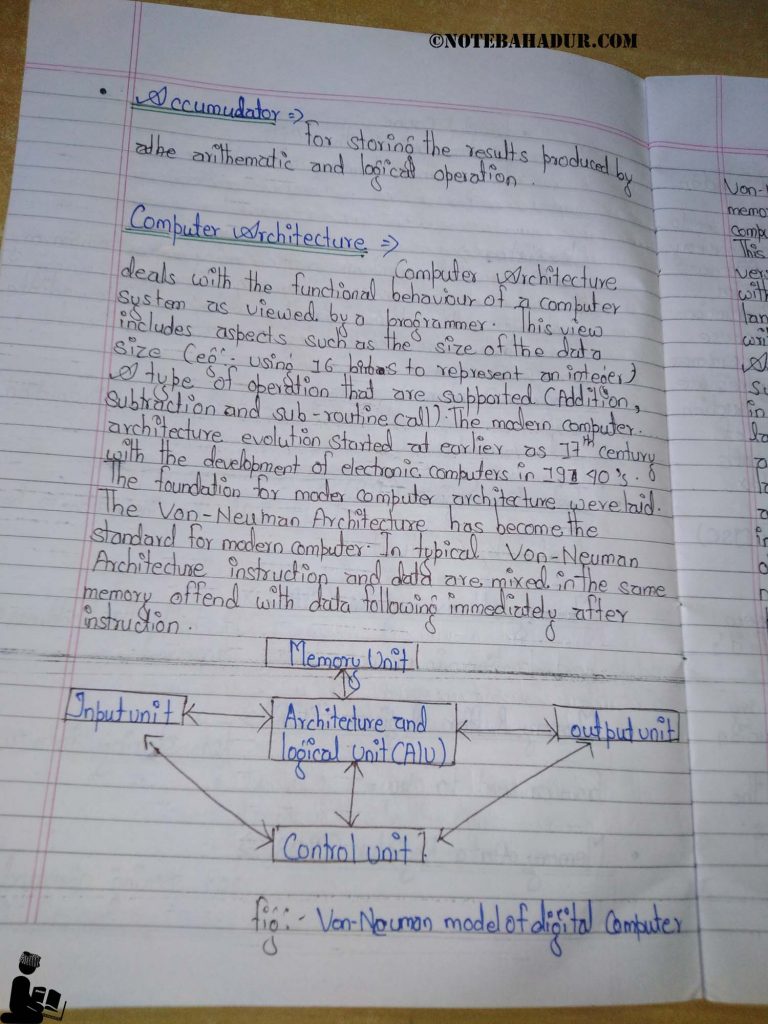 ©NOTEBAHADUR.COM
Accumudator =>
for storing the results produced by
athe arithematic and logical operation.
Computer Architecture =>
Computer Architecture
deals with the functional behaviour of a computer
system as viewed by a programmer. This view
includes aspects such as the size of the data
size (eg:- using 16 to represent an integer)
& type of operation that are supported (Addition,
Subtraction and sub-routine call). The modern computer.
architecture evolution started at earlier as 17th century
with the development of electronic computers in 1940's.
The foundation for moder computer architecture were laid.
The Von-Neuman Architecture has become the
standard for modern computer. In typical Von-Neuman
Architecture instruction and data are mixed in the same
memory offend with data following immediately after
instruction.
Memory Unit
Input unit
Architecture and
logical unit (Alu)
output unit
Control unit
fig:- Von-Neuman model of digital Computer
Von-
memo
comp
This
vers
with
lan
wri